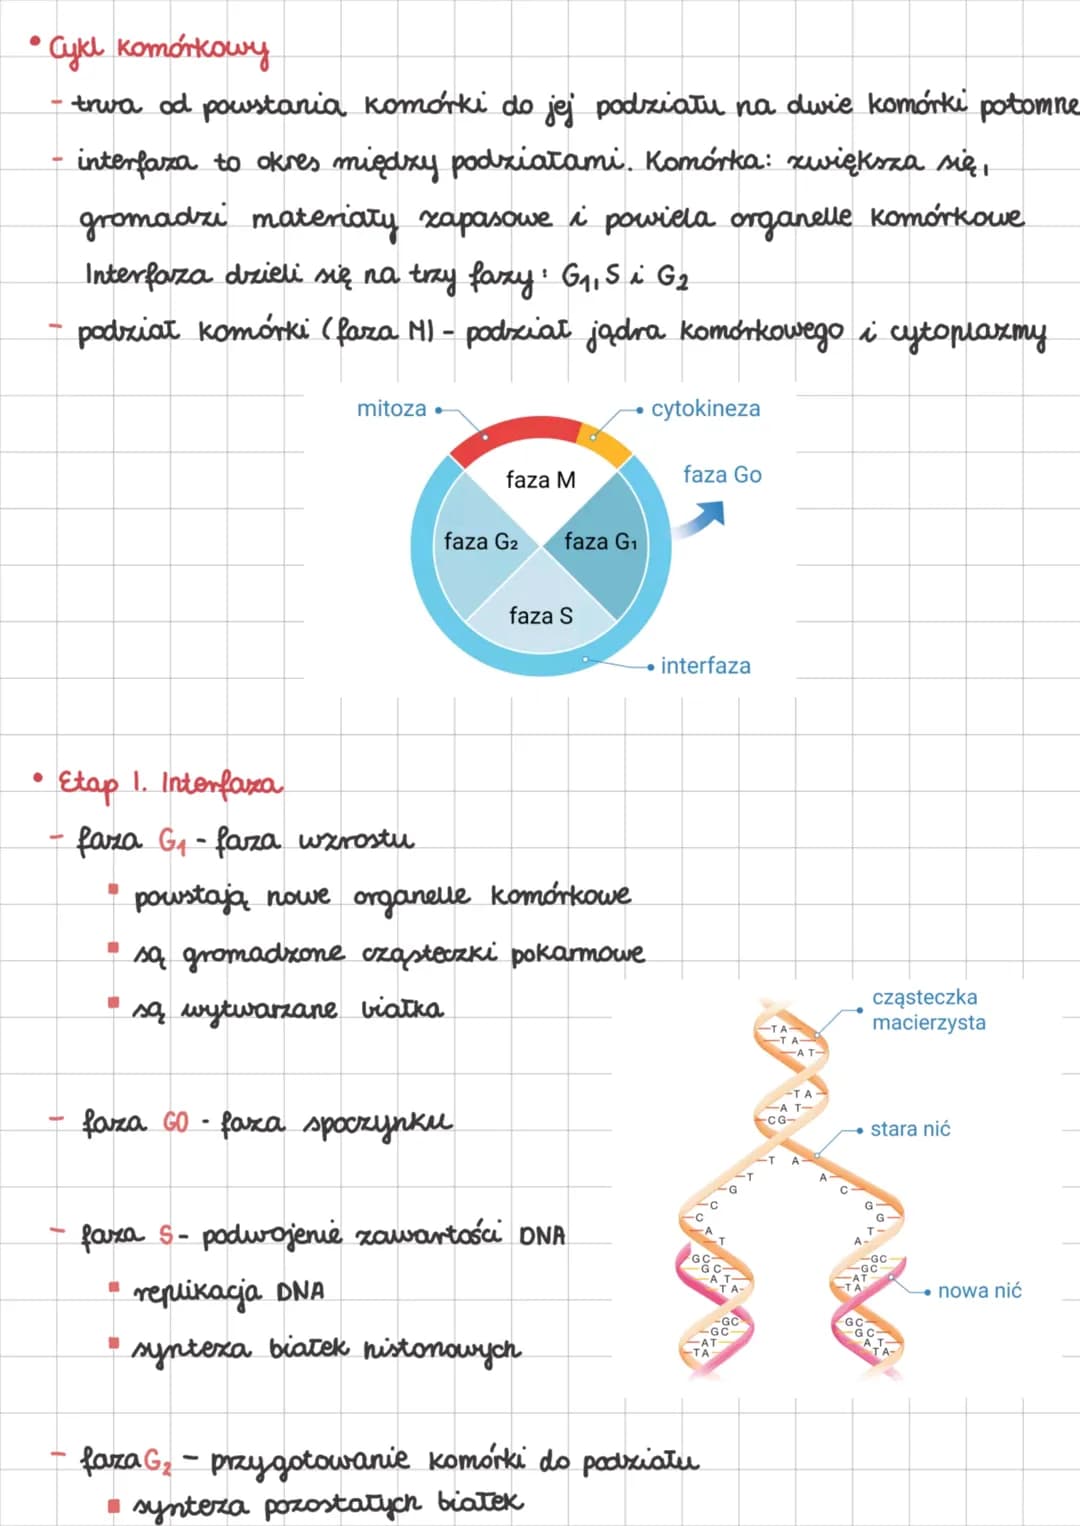 • Cykl komórkowy
- trwa od powstania komórki do jej podziału na dwie komórki potomne
- interfaza to okres między podziałami. Komórka: zwiększa się,
gromadzi materiały zapasowe i powiela organelle komórkowe
Interfaza dzieli się na trzy fazy: G1, S i G2
- podział komórki (faza M) - podział jądra komórkowego i cytoplazmy
mitoza
cytokineza
faza M
faza Go
faza G2
faza G1
faza S
interfaza
• Etap 1. Interfaza
- faza G1 - faza wzrostu
▪ powstają nowe organelle komórkowe
▪ są gromadzone cząsteczki pokarmowe
▪ są wytwarzane białka
cząsteczka
macierzysta
T A
T A
A T
T A
A T
C G
- faza G0 - faza spoczynku
stara nić
T A
T A
G C
C G
C G
A T
T A
- faza S - podwojenie zawartości DNA
GC GC
GC GC
AT AT
TA TA
▪ replikacja DNA
nowa nić
GC GC
GC GC
AT AT
TA TA
▪ synteza białek histonowych
- faza G2 - przygotowanie komórki do podziału
▪ synteza pozostałych białek